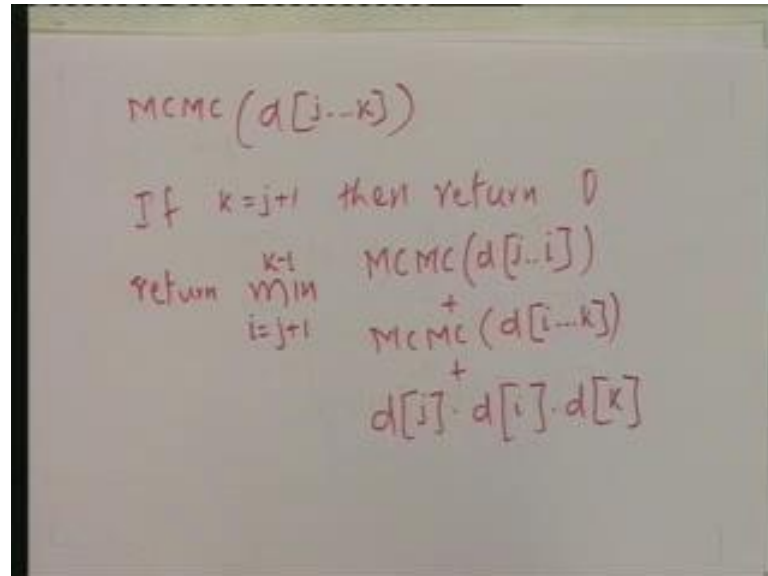 MCMC (d[j...k])
If k=j+1 then return 0
return min k-1 i=j+1 MCMC(d[j..i])
+
MCMC (d[i...k])
+
d[j].d[i].d[k]